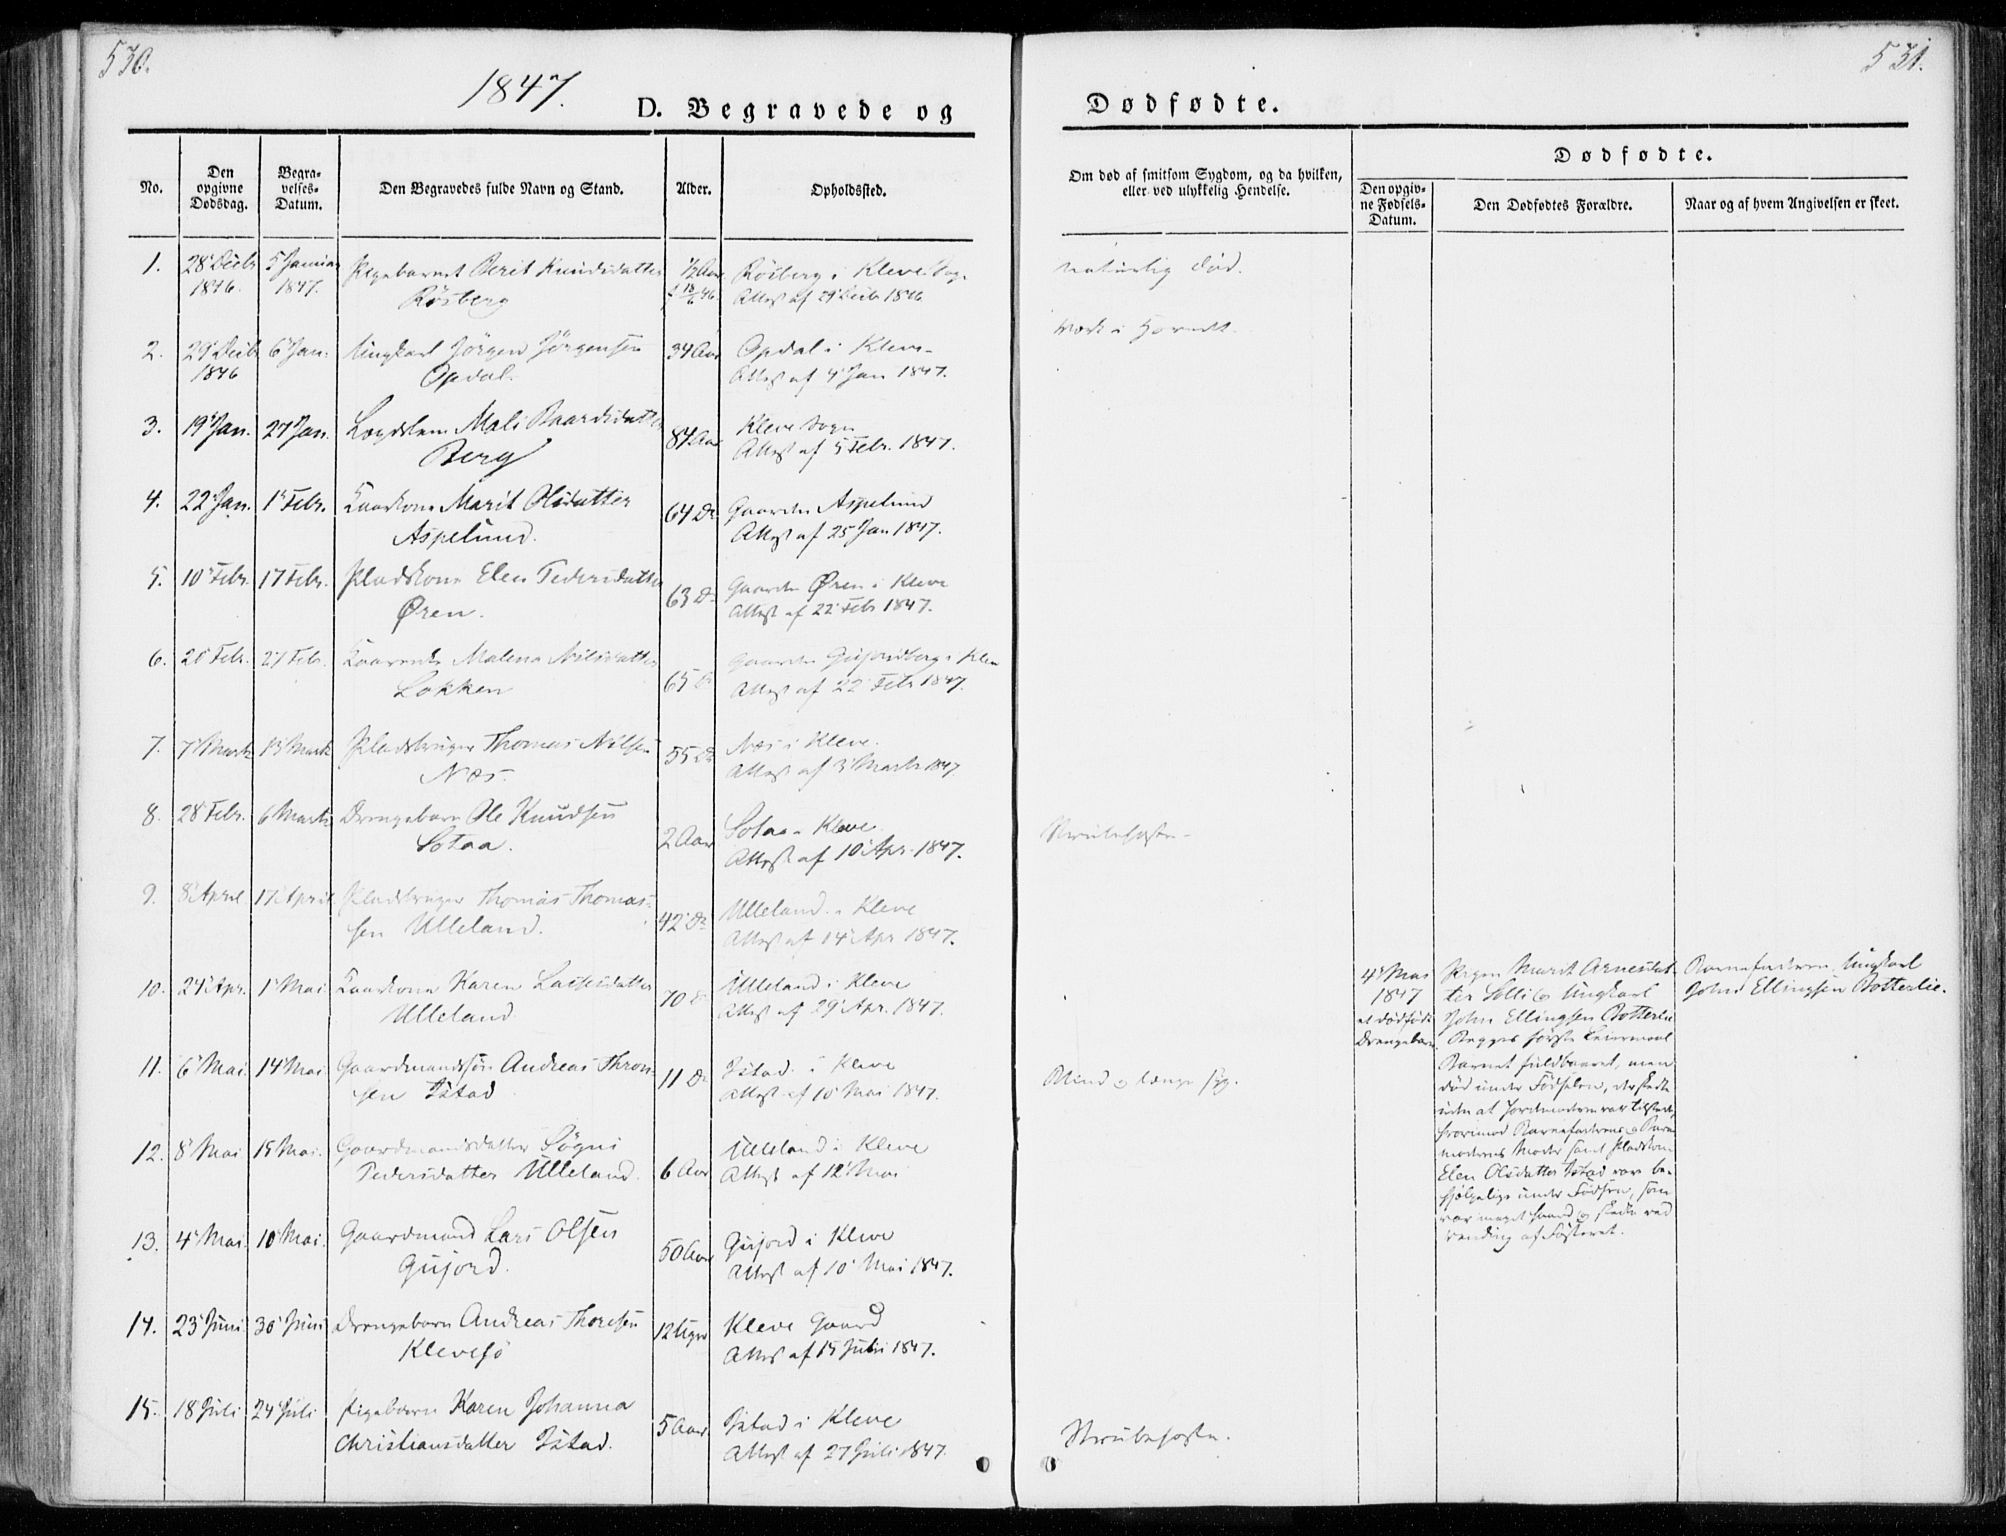 530.
1847.
D. Begravede og
No.
Den opgivne Dødsdag.
Begravelses-Datum.
Den Begravedes fulde Navn og Stand.
Alder.
Opholdssted.
1. 28 Decbr 1846. 5 Januar 1847. Pigebarnet Berit Knudsdatter
Rösberg
½ Aar
Rösberg i Kleve Sogn
Attest af 29 Decbr 1846
2. 29 Decbr 1846 6 Jan. Ungkarl Jörgen Jörgensen
Opdal.
34 Aar
Opdal i Kleve
Attest af 4 Jan 1847.
3. 19 Jan. 27 Jan. Lægdslem Mali Baardsdatter
Berg
84 Aar
Kleve Sogn
Attest af 5 Febr. 1847.
4. 22 Jan. 1 Febr. Kaarkone Marit Olsdatter
Aspelund.
64 Do
Gaarden Aspelund
Attest af 25 Jan 1847.
5. 10 Febr. 17 Febr. Pladskone Elen Pedersdatter
Øren.
63 Do
Gaarden Øren i Kleve
Attest af 22 Febr 1847.
6. 20 Febr. 27 Febr. Malena Nilsdatter
Løkken
65 Do
Gaarden Gujordberg i Kleve
Attest af 22 Febr 1847.
7. 7 Marts 13 Marts Pladsbruger Thomas Nilsen
Næs.
55 Do
Næs i Kleve.
Attest af 3 Marts 1847.
8. 28 Febr. 6 Marts Drengebarn Ole Knudsen
Sotaa.
2 Aar
Sotaa i Kleve.
Attest af 10 Apr. 1847.
9. 8 April 17 April Pladsbruger Thomas Thomas-
sen Ulleland.
42 Do
Ulleland i Kleve
Attest af 14 Apr 1847.
10. 24 Apr. 1 Mai Kaarkone Karen Lassesdatter
Ulleland
70 Do
Ulleland i Kleve
Attest af 29 Apr. 1847.
11. 6 Mai 14 Mai Gaardmandssön Andreas Thron-
sen Istad
11 Do
Istad i Kleve
Attest af 10 Mai 1847.
12. 8 Mai 15 Mai. Gaardmandsdatter Søgni
Pedersdatter Ulleland.
6 Aar
Ulleland i Kleve
Attest af 12 Mai
13. 4 Mai. 10 Mai. Gaardmand Lars Olsen
Gujord.
50 Aar
Gujord i Kleve
Attest af 10 Mai 1847.
14. 23 Juni 30 Juni Drengebarn Andreas Thoresen
Kleve
12 Uger
Kleve Gaard
Attest af 15 Juli 1847.
15. 18 Juli 24 Juli Pigebarn Karen Johanna
Christiansdatter Istad.
5 Aar.
Istad i Kleve
Attest af 27 Juli 1847.
531.
Dødfødte.
Om død af smitsom Sygdom, og da hvilken, eller ved ulykkelig Hendelse.
Dødfødte.
Den opgivne Fødsels-Datum.
Den Dødfødtes Forældre.
Naar og af hvem Angivelsen er skeet.
naturlig Død.
Strubehoste
Blind og længe syg.
Strubehoste.
4 Mai
1847
et dødfødt
Drengebarn
Pigen Marit Arnesdat-
ter Solli og Ungkarl
John Ellingsen Botterlie
Begges første Leiermaal
Barnet fuldbaaret, men
død under Fødselen, der skete
uden at Jordmoderen var tilstede,
hvorimod Barnefaderens og Barne-
moderens Moder samt Pladskone
Elen Olsdatter Istad vare be-
hjelpelige under Fødselen, som
var meget haard og skete ved
Vending af Fosteret.
Barnefaderen Ungkarl
John Ellingsen Botterlie.